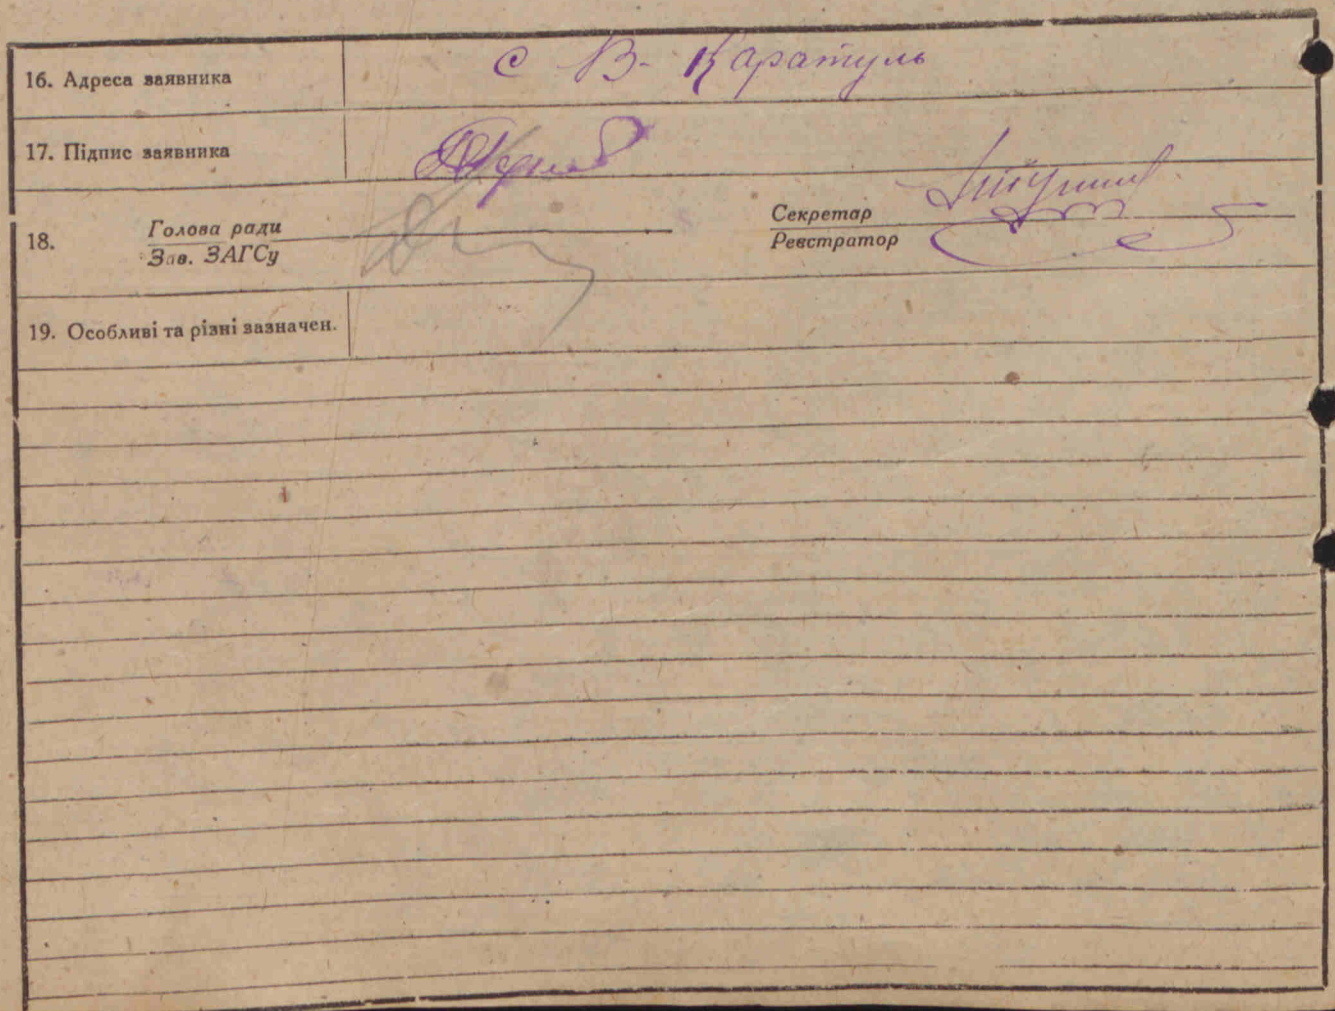 16. Адреса заявника с В- Каратуль
17. Підпис заявника
18. Голова ради Секретар
Зав. ЗАГСу Реєстратор
19. Особливі та різні зазначен.